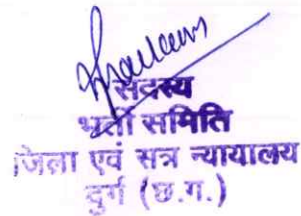 सदस्य
भर्ती समिति
जिला एवं सत्र न्यायालय
दुर्ग (छ.ग.)